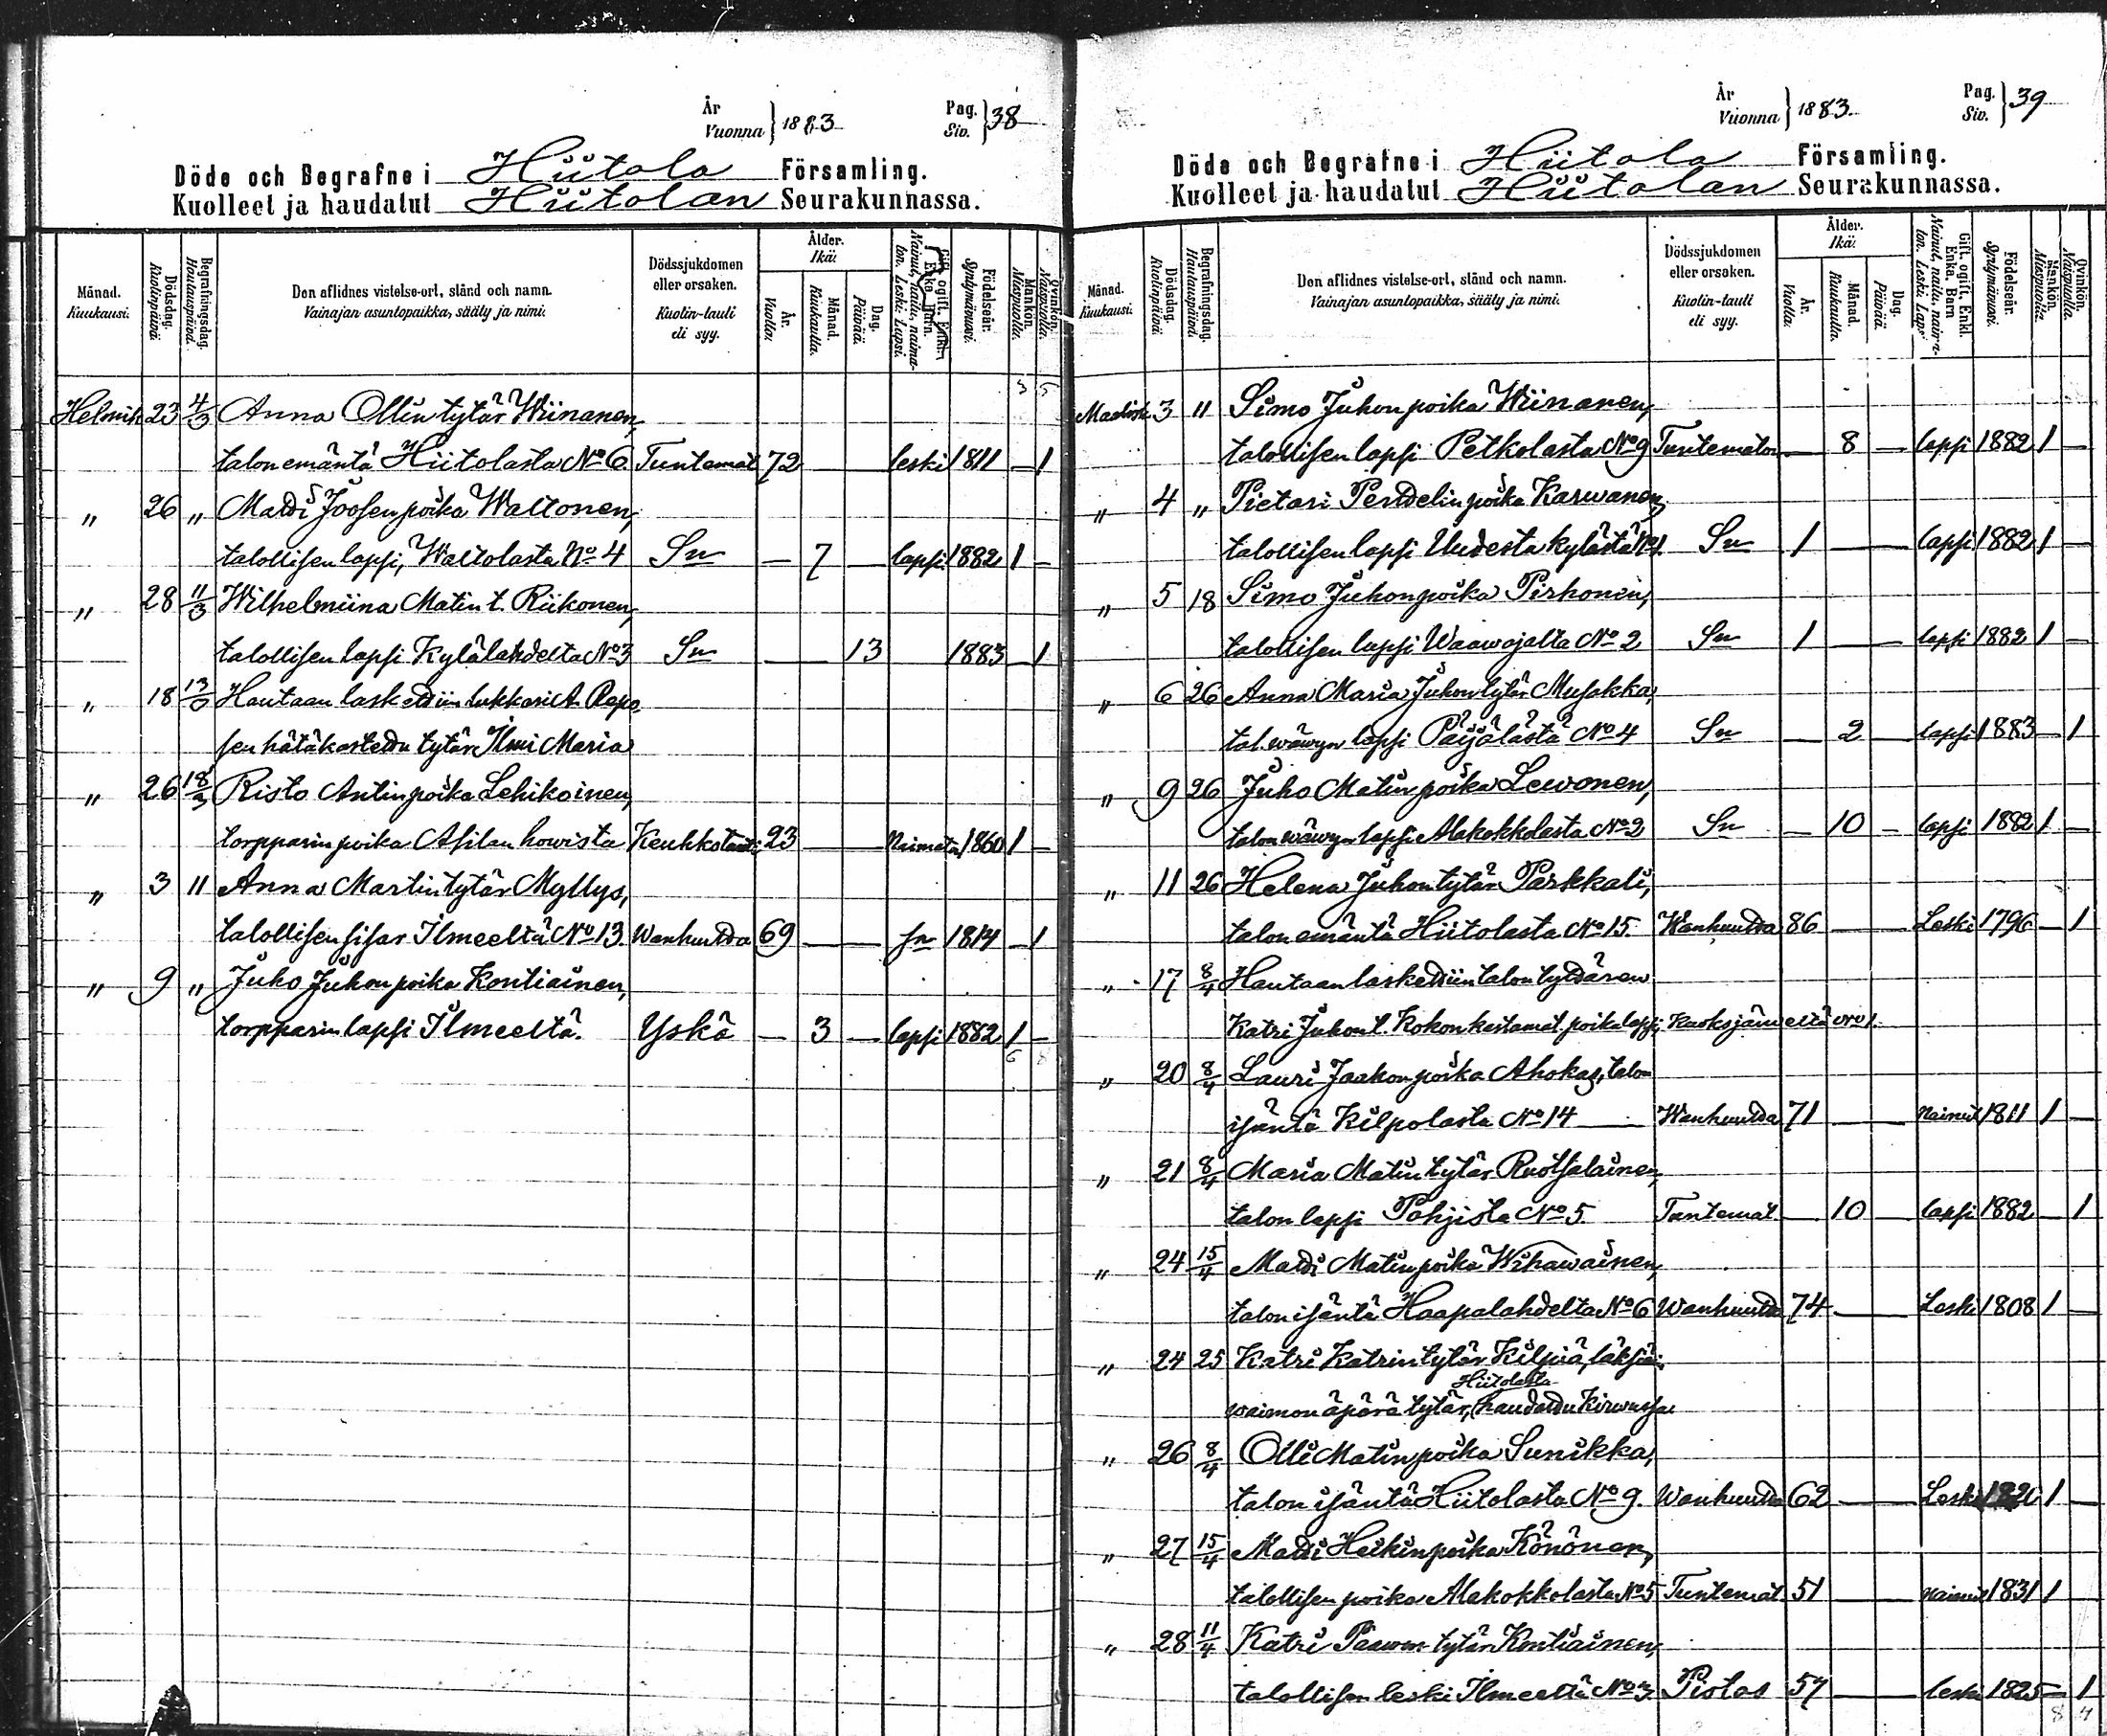 År
Vuonna } 1883
Pag.
Siv. } 38
Döde och Begrafne i Hiitola Församling.
Kuolleet ja haudatut Hiitolan Seurakunnassa.
Månad. Kuukausi. Dödsdag. Kuolinpäivä. Begrafningsdag. Hautauspäivä. Den aflidnes vistelse-ort, stånd och namn. Vainajan asuntopaikka, sääty ja nimi. Dödssjukdomen eller orsaken. Kuolin-tauti eli syy. Ålder. Ikä: År. Vuotta: Månad. Kuukautta. Dag. Päivää. Gift, ogift, Enkl. Enka, Barn. Nainut, nailu, naima-ton. Leski. Lapsi. Födelseår. Syntymävuosi. Mankön. Miespuolia. Qvinkön. Naispuolia.
3 5
Helmik 23 4/3 Anna Ollin tytär Wiinanen,
talon emäntä Hiitolasta No 6 Tuntemat 72 — leski 1811 — 1
" 26 " Matti Joosen poika Waltonen,
talollisen lapsi, Waltolasta No 4 Sn — 7 — lapsi 1882 1 —
" 28 11/3 Wilhelmiina Matin t. Riikonen,
talollisen lapsi Kylälahdelta No 3 Sn — 13 1883 — 1
" 18 13/3 Hautaan laskettiin lukkari A. Repo-
sen hätäkastettu tytär Ilmi Maria
" 26 18/3 Risto Antinpoika Lehikoinen,
torpparin poika Asilan howista Keuhkotauti 23 — Naimatn 1860 1 —
" 3 11 Anna Martin tytär Myllys,
talollisen sisar Ilmeeltä No 13. Wanhuutta 69 — sn 1814 — 1
" 9 " Juho Juhon poika Kontiainen,
torpparin lapsi Ilmeeltä. Yskä — 3 — lapsi 1882 1 —
6 8
År
Vuonna } 1883.
Pag.
Siv. } 39
Döde och Begrafne i Hiitola Församling.
Kuolleet ja haudatut Hiitolan Seurakunnassa.
Månad. Kuukausi. Dödsdag. Kuolinpäivä. Begrafningsdag. Hautauspäivä. Den aflidnes vistelse-ort, stånd och namn. Vainajan asuntopaikka, sääty ja nimi. Dödssjukdomen eller orsaken. Kuolin-tauti eli syy. Ålder. Ikä: År. Vuotta: Månad. Kuukautta. Dag. Päivää. Gift, ogift, Enkl. Enka, Barn Födelseår. Syntymävuosi. Mankön. Miespuolia. Qvinkön. Naispuolia.
Maalisk 3 11 Simo Juhon poika Wiinanen,
talollisen lapsi Petkolasta No 9 Tuntematon — 8 — lapsi 1882 1 —
" 4 " Pietari Pendelin poika Karwanen,
talollisen lapsi Uudesta kylästä No 1. Sn 1 — lapsi 1882 1 —
" 5 18 Simo Juhonpoika Pirhonen,
talollisen lapsi Waawojalta No 2 Sn 1 — lapsi 1882 1 —
" 6 26 Anna Maria Juhon tytär Musakka,
tal. wäwyn lapsi Päijälästä No 4 Sn — 2 — lapsi 1883 — 1
" 9 26 Juho Matin poika Lewonen,
talon wäwyn lapsi Alakokkolasta No 2 Sn — 10 — lapsi 1882 1 —
" 11 26 Helena Juhontytär Parkkali,
talon emäntä Hiitolasta No 15. Wanhuutta 86 — Leski 1796 — 1
" 17 8/4 Hautaan laskettiin talon tyttären
Katri Juhon t. Kokon kastamat. poikalapsi, Kuoksjärweltä No 1.
" 20 8/4 Lauri Jaakon poika Ahokas, talon
isäntä Kilpolasta No 14 — Wanhuutta 71 — Nainut 1811 1 —
" 21 8/4 Maria Matin tytär Ruotsalainen,
talon lapsi Pohjista No 5. Tuntemat. — 10 — lapsi 1882 — 1
" 24 15/4 Matti Matin poika Wihawainen,
talon isäntä Haapalahdelta No 6 Wanhuutta 74 — Leski 1808 1 —
" 24 25 Katri Katrin tytär Kilpiä,
Hiitolasta
waimon äpärä tytär, haudattu Kirwussa
" 26 8/4 Olli Matin poika Sunikka,
talon isäntä Hiitolasta No 9. Wanhuutta 62 — Leski 1 —
" 27 15/4 Matti Heikin poika Könönen,
talollisen poika Alakokkolasta No 5 Tuntemat. 51 — Nainut 1831 1
" 28 11/4 Katri Paawon tytär Kontiainen,
talollisen leski Ilmeeltä No 3. Pistos 57 — leski 1825 — 1
8 7